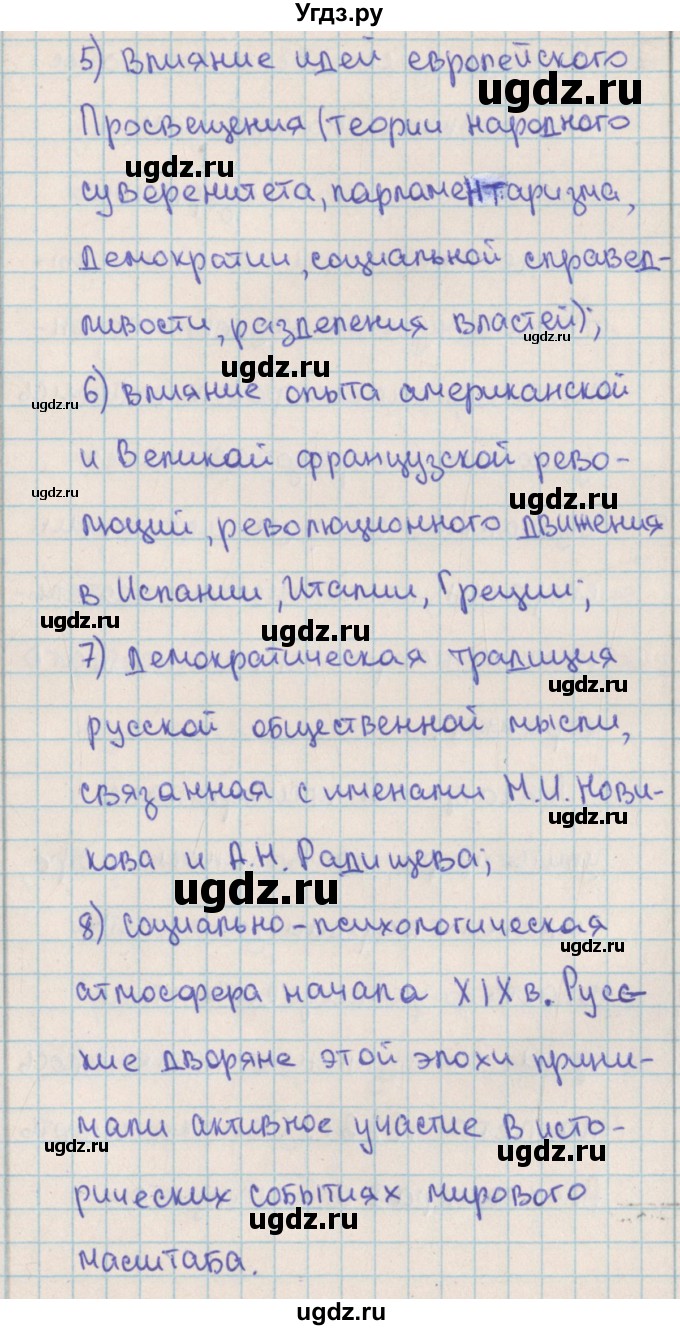 Угдз.ру
5) влияние идей европейского
ugdz.ru
Просвещения (теории народного
ugdz.ru
суверенитета, парламентаризма,
демократии, социальной справед-
ливости, разделения властей);
ugdz.ru
ugdz.ru
6) влияние опыта американской
ugdz.ru
и Великой французской рево-
ugdz.ru
ugdz.ru
люций, революционного движения
в Испании, Италии, Греции;
ugdz.ru
ugdz.ru
7) демократическая традиция
ugdz.ru
русской общественной мысли,
связанная с именами Н.И. Нови-
ugdz.ru
кова и А.Н. Радищева;
ugdz.ru
8) социально-психологическая
ugdz.ru
атмосфера начала XIX в. Русс-
кие дворяне этой эпохи прини-
мали активное участие в исто-
ugdz.ru
ugdz.ru
рических событиях мирового
ugdz.ru
масштаба.
ugdz.ru